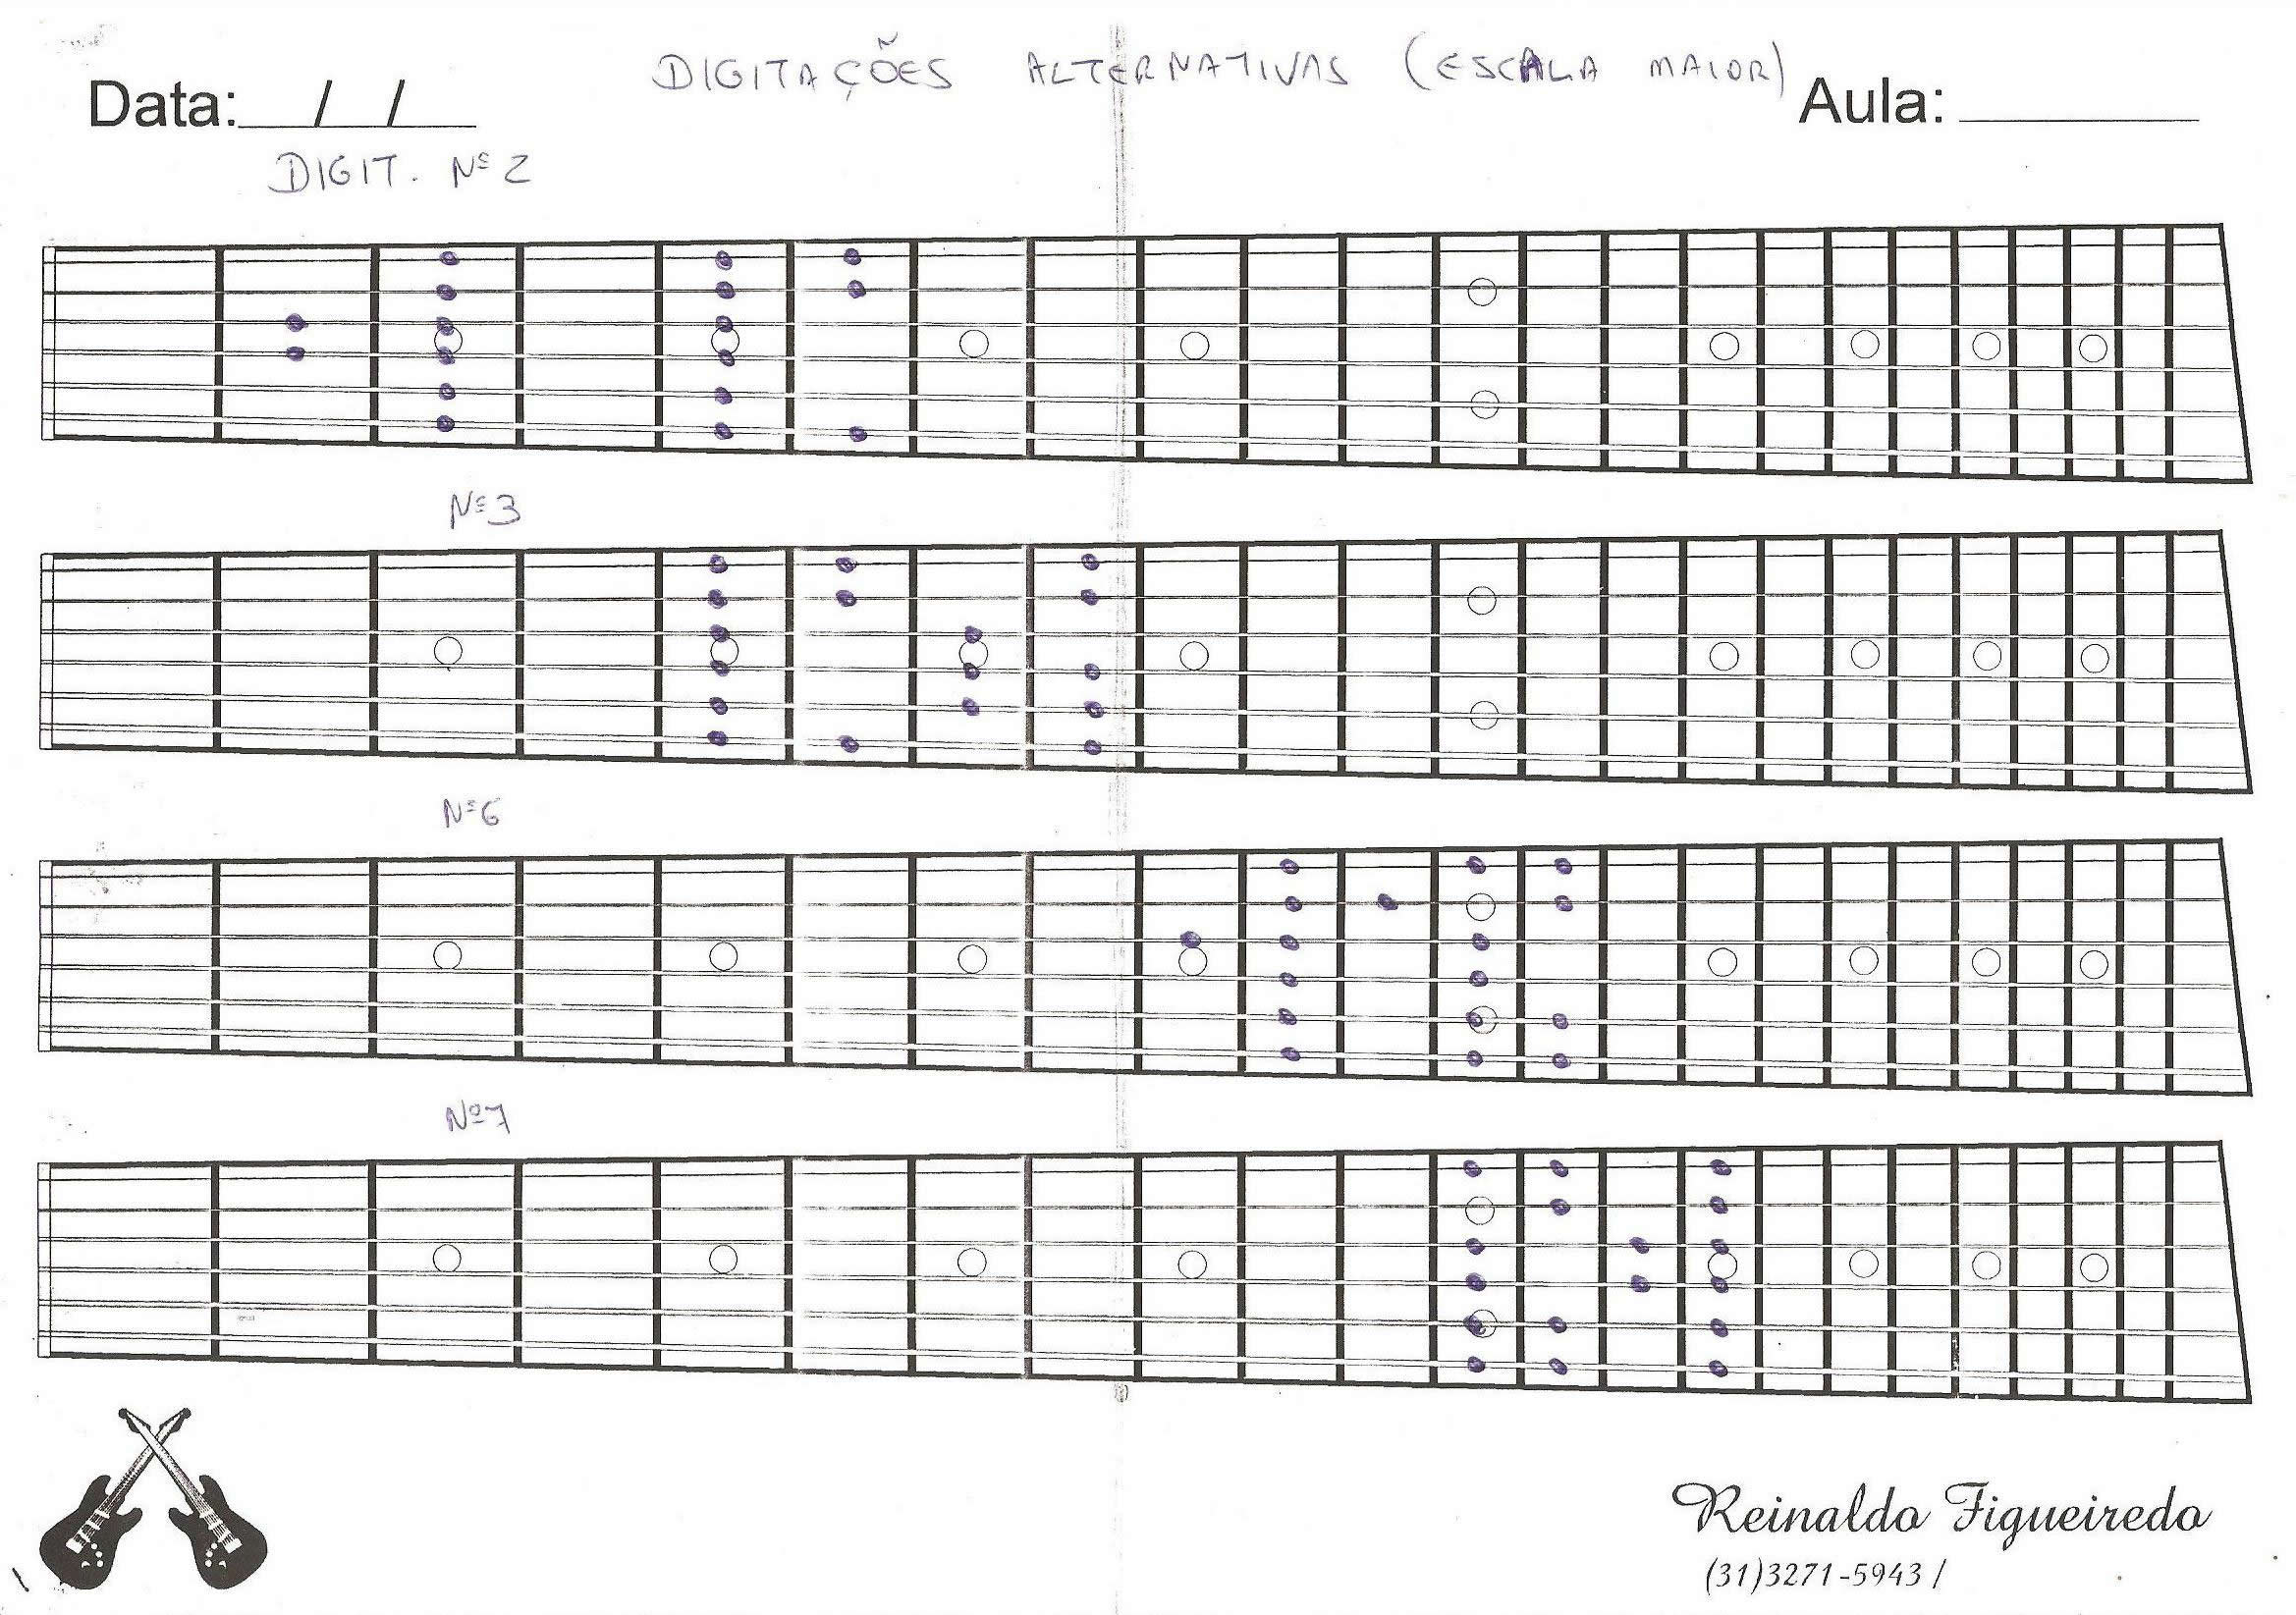 DIGITAÇÕES ALTERNATIVAS (ESCALA MAIOR)
Data: / / Aula:
DIGIT. Nº 2
Nº 3
Nº 6
Nº 7
Reinaldo Figueiredo
(31)3271-5943 /